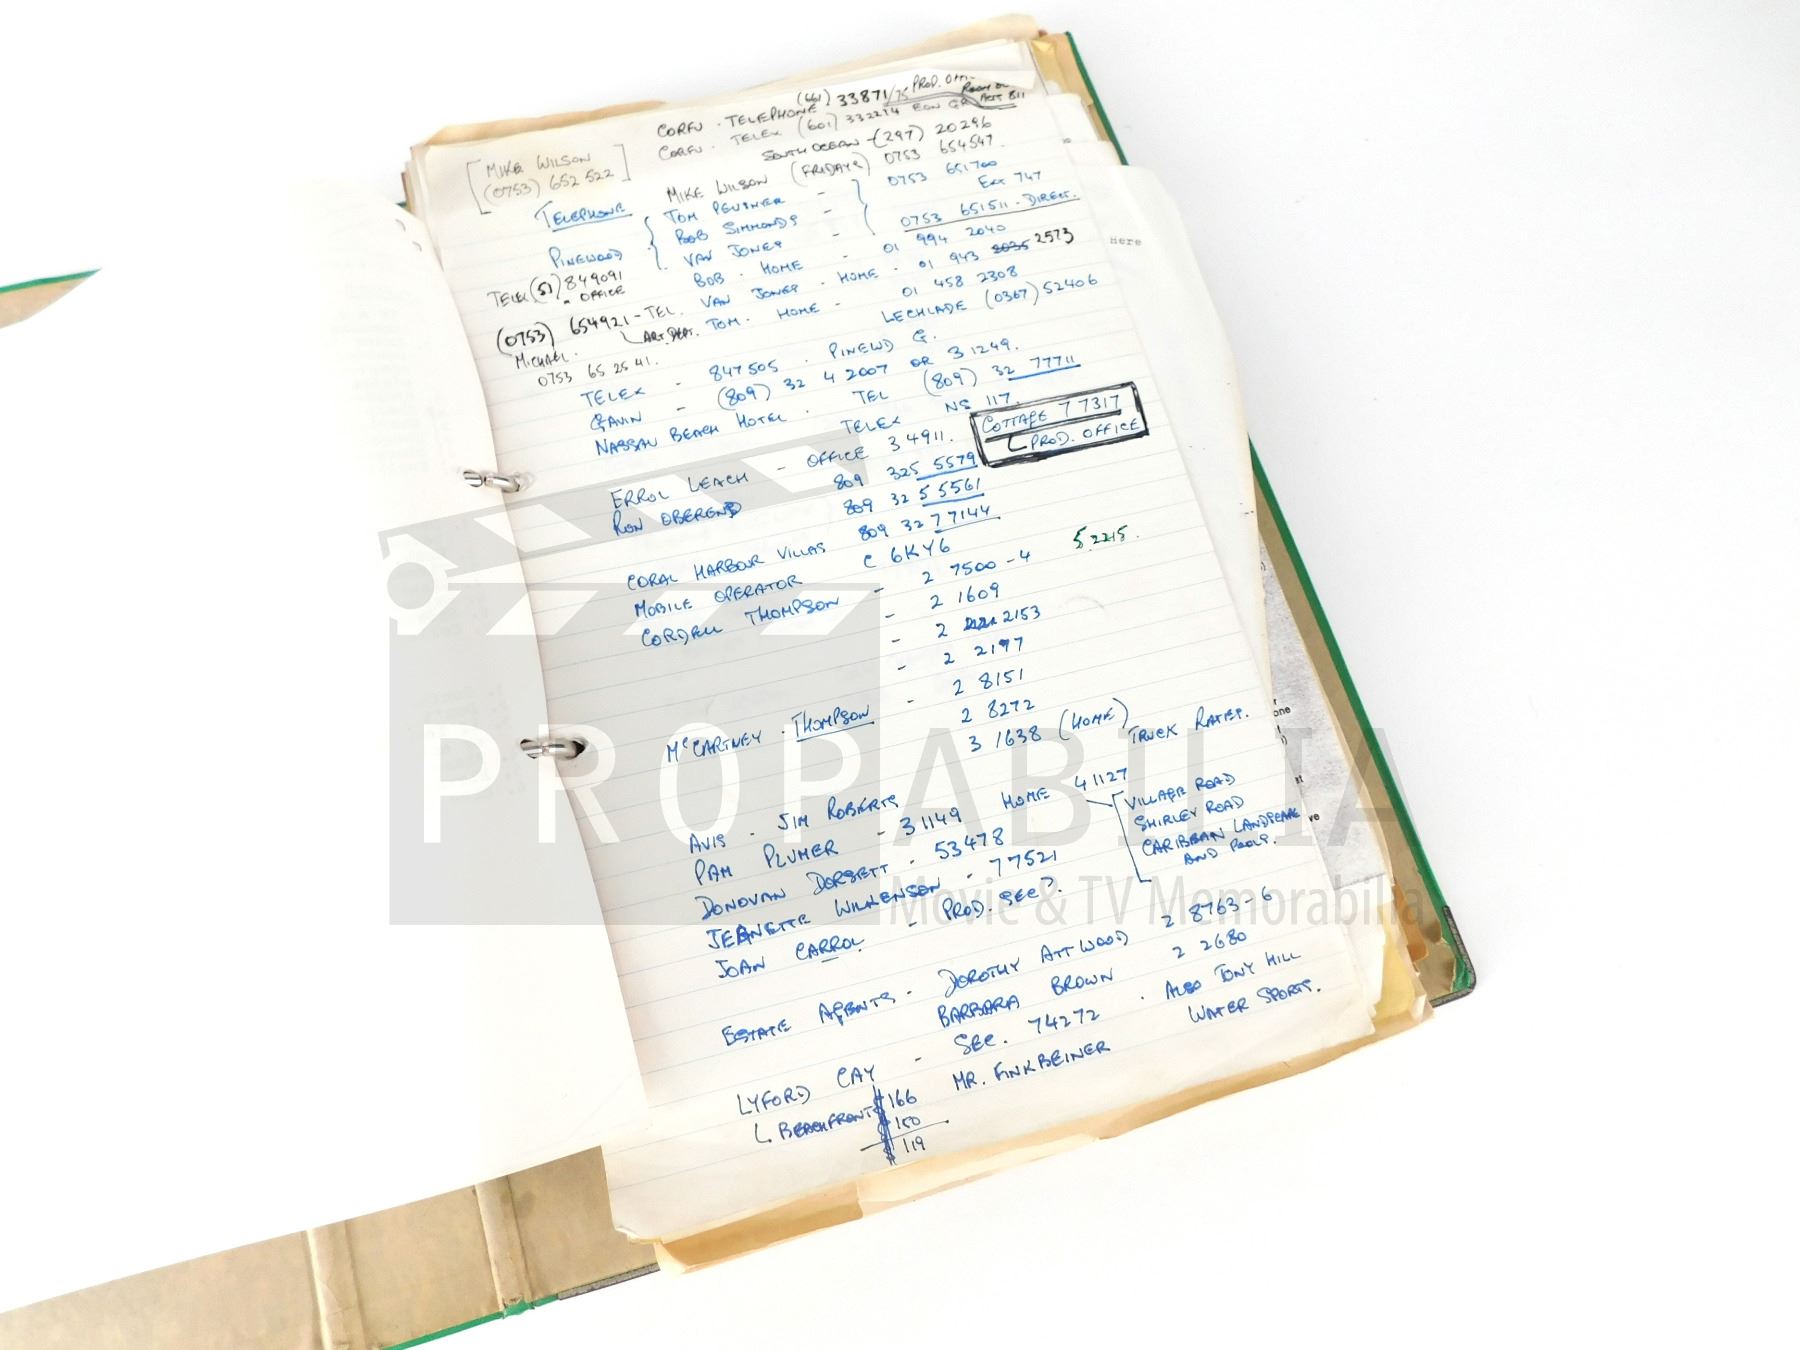 (661) 33871/75 PROD. OFF
CORFU . TELEPHONE
CORFU . TELEX (601) 332214 EON GR
ART 811
SOUTH OCEAN - (297) 20296
[MIKE WILSON
(0753) 652 522]
MIKE WILSON (FRIDAYS) 0753 654547.
TELEPHONE
TOM PEVSNER - 0753 651700
BOB SIMMONDS - EXT 747
PINEWOOD
VAN JONES - 0753 651511 - DIRECT.
TELEX (51) 849091
" OFFICE
BOB . HOME - 01 994 2040
VAN JONES . HOME . 01 943 2035 2573
(0753) 654921 - TEL.
ART. DEPT.
TOM . HOME - 01 458 2308
LECHLADE (0367) 52406
MICHAEL.
0753 65 25 41.
TELEX - 847505 . PINEWD G.
GAVIN - (809) 32 4 2007 OR 31249.
NASSAU BEACH HOTEL . TEL (809) 32 77711
TELEX NS 117.
COTTAGE 77317
PROD. OFFICE
ERROL LEACH - OFFICE 34911.
RON OBEREND 809 325 5579
809 32 55561
CORAL HARBOUR VILLAS 809 32 77144
MOBILE OPERATOR C 6KY6
52215.
CORDELL THOMPSON - 2 7500-4
- 2 1609
- 2 2153
- 2 2197
2 8151
MCCARTNEY . THOMPSON - 2 8272
3 1638 (HOME)
TRUCK RATES.
AVIS - JIM ROBERTS HOME 41127
PAM PLUMER - 31149
DONOVAN DORSETT - 53478
JEANETTE WILKENSON . 77521
JOAN CARROL - PROD. SEC?.
VILLAGE ROAD
SHIRLEY ROAD
CARIBBEAN LANDSCAPE
AND POOLS.
ESTATE AGENTS - DOROTHY ATTWOOD 2 8763-6
BARBARA BROWN 2 2680
LYFORD CAY - SEC. 74272 . ALSO TONY HILL
WATER SPORTS.
BEACHFRONT $166 MR. FINKBEINER
$150
$119
Here
one
PROPABILIA
Movie & TV Memorabilia